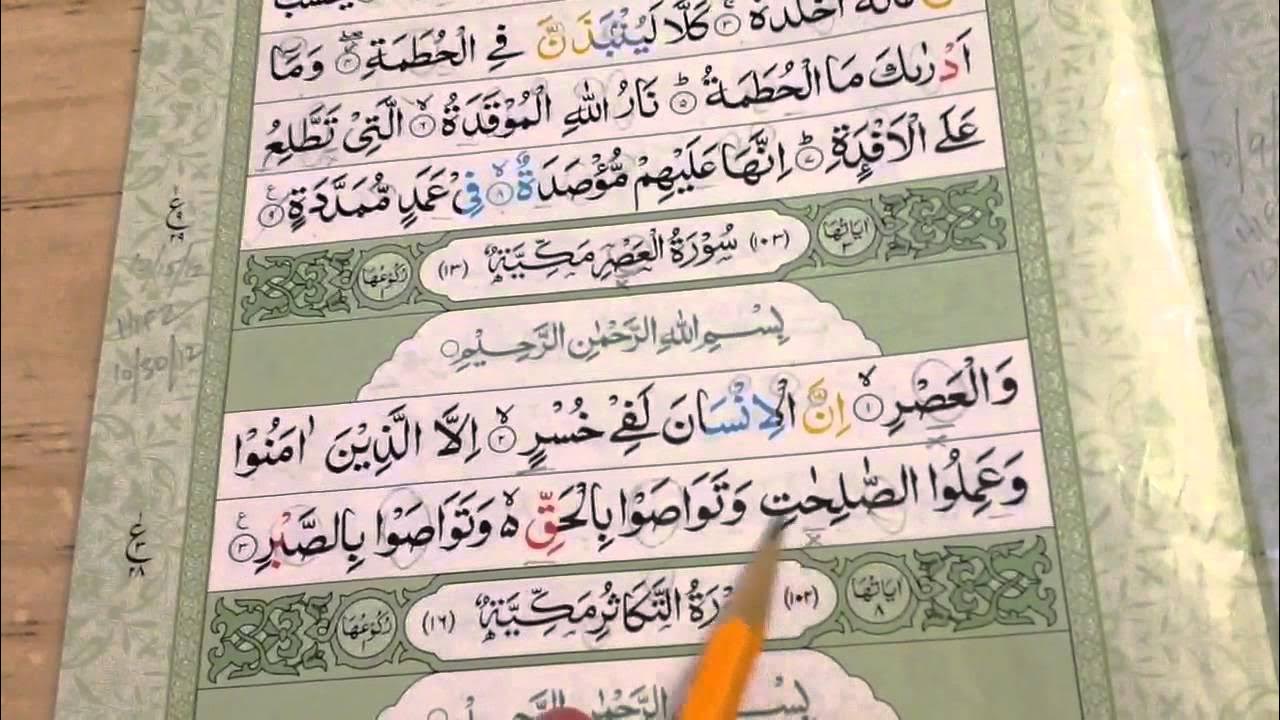 مَالَهٗٓ اَخْلَدَهٗ ۚ﴿۳﴾ كَلَّا لَيُنْۢبَذَنَّ فِي الْحُطَمَةِ ﴿۴﴾ وَمَآ
اَدْرٰىكَ مَا الْحُطَمَةُ ؕ﴿۵﴾ نَارُ اللّٰهِ الْمُوْقَدَةُ ۙ﴿۶﴾ الَّتِيْ تَطَّلِعُ
عَلَى الْاَفْـِٕدَةِ ؕ﴿۷﴾ اِنَّهَا عَلَيْهِمْ مُّؤْصَدَةٌ ۙ﴿۸﴾ فِيْ عَمَدٍ مُّمَدَّدَةٍ ﴿۹﴾
اٰيَاتُهَا ۳ (۱۰۳) سُوْرَةُ الْعَصْرِ مَكِّيَّةٌ (۱۳) رُكُوْعُهَا ۱
بِسْمِ اللّٰهِ الرَّحْمٰنِ الرَّحِيْمِ
وَالْعَصْرِ ۙ﴿۱﴾ اِنَّ الْاِنْسَانَ لَفِيْ خُسْرٍ ۙ﴿۲﴾ اِلَّا الَّذِيْنَ اٰمَنُوْا
وَعَمِلُوا الصّٰلِحٰتِ وَتَوَاصَوْا بِالْحَقِّ ۙ۬ وَتَوَاصَوْا بِالصَّبْرِ ﴿۳﴾
اٰيَاتُهَا ۸ (۱۰۲) سُوْرَةُ التَّكَاثُرِ مَكِّيَّةٌ (۱۶) رُكُوْعُهَا ۱
بِسْمِ اللّٰهِ الرَّحْمٰنِ الرَّحِيْمِ
ع ۹ ۲۹
HIFZ
10/30/12
ع ۳ ۲۸